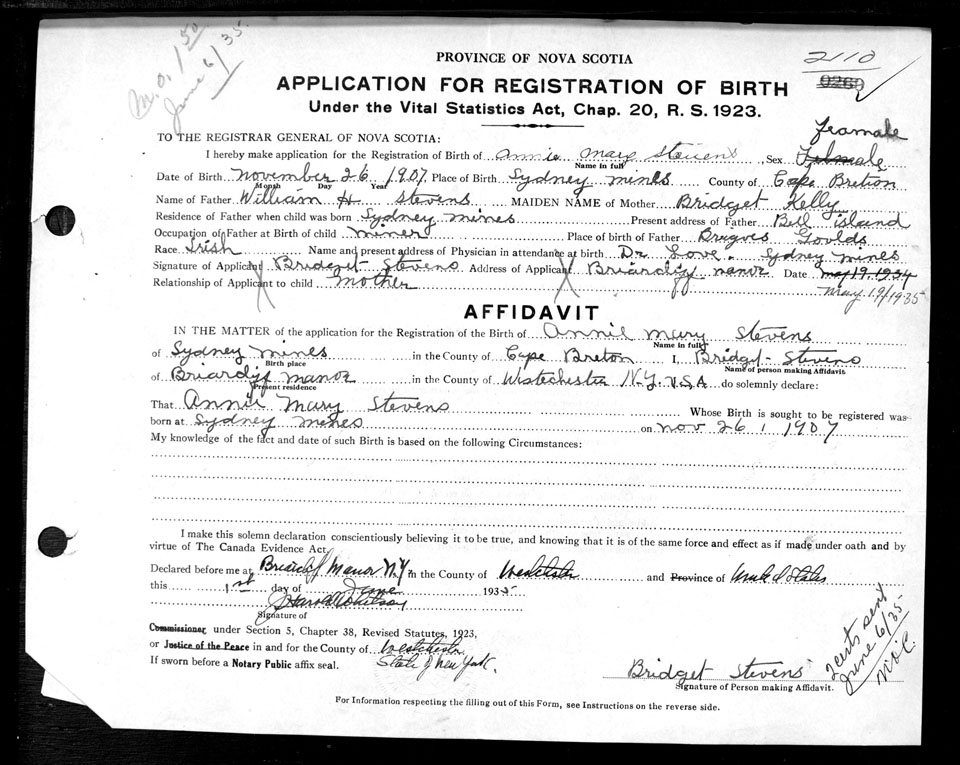 M.O. 1/50
June 6/35
PROVINCE OF NOVA SCOTIA
2110
9260
APPLICATION FOR REGISTRATION OF BIRTH
Under the Vital Statistics Act, Chap. 20, R. S. 1923.
TO THE REGISTRAR GENERAL OF NOVA SCOTIA:
Feamale
I hereby make application for the Registration of Birth of Annie Mary Stevens Sex
Name in full
Date of Birth November 26 1907 Place of Birth Sydney mines County of Cape Bretion
Month Day Year
Name of Father William H. Stevens MAIDEN NAME of Mother Bridget Kelly
Residence of Father when child was born Sydney mines Present address of Father Bell island
Occupation of Father at Birth of child miner Place of birth of Father Brigves Goulds
Race Irish Name and present address of Physician in attendance at birth Dr Love. Sydney mines
Signature of Applicant Bridget Stevens Address of Applicant Briarcliff manor Date May 19. 1934
Relationship of Applicant to child mother May 19/1935
AFFIDAVIT
IN THE MATTER of the application for the Registration of the Birth of Annie Mary Stevens
Name in full
of Sydney mines in the County of Cape Breton I, Bridget Stevens
Birth place Name of person making Affidavit
of Briarclif manor in the County of Westechester N.Y. U.S.A do solemnly declare:
Present residence
That Annie Mary Stevens Whose Birth is sought to be registered was
born at Sydney mines on nov 26, 1907
My knowledge of the fact and date of such Birth is based on the following Circumstances:
I make this solemn declaration conscientiously believing it to be true, and knowing that it is of the same force and effect as if made under oath and by
virtue of The Canada Evidence Act.
Declared before me at Briarcliff Manor N.Y. in the County of Westchester and Province of United States
this 1st day of June 1935
Signature of
Commissioner under Section 5, Chapter 38, Revised Statutes, 1923,
or Justice of the Peace in and for the County of Westchester
If sworn before a Notary Public affix seal. State of New York.
Bridget Stevens
Signature of Person making Affidavit.
2 certs sent
June 6/35
M.C.
For Information respecting the filling out of this Form, see Instructions on the reverse side.